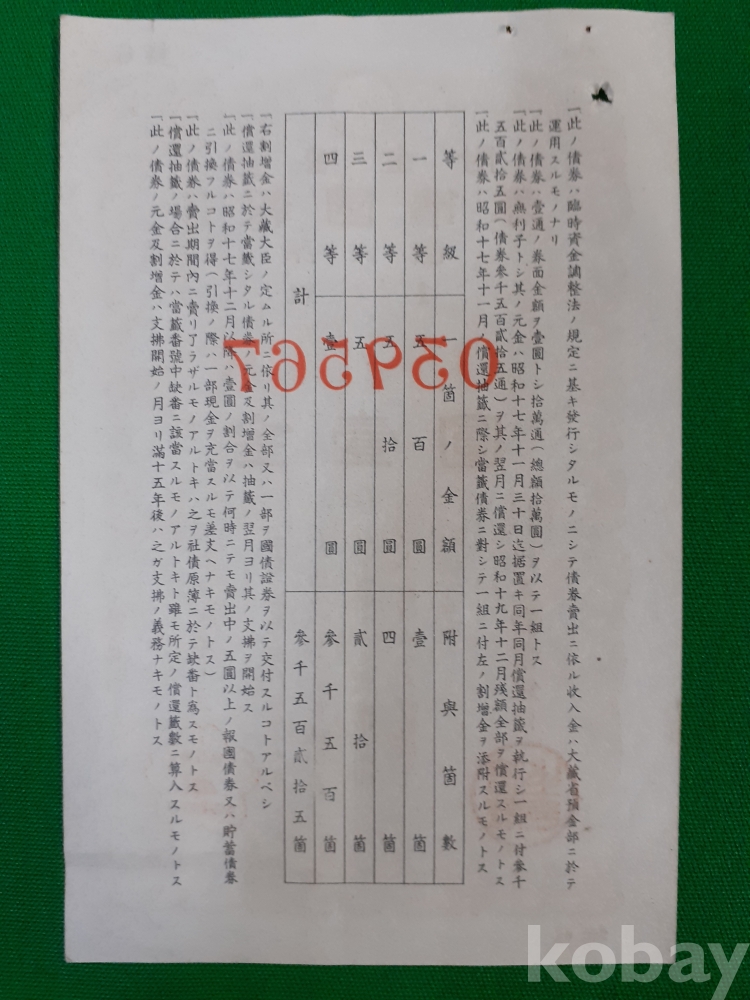 一此ノ債券ハ臨時資金調整法ノ規定ニ基キ發行シタルモノニシテ債券賣出ニ依ル收入金ハ大藏省預金部ニ於テ
運用スルモノナリ
一此ノ債券ハ壹通ノ券面金額ヲ壹圓トシ拾萬通(總額拾萬圓)ヲ以テ一組トス
一此ノ債券ハ無利子トシ其ノ元金ハ昭和十七年十一月三十日迄据置キ同年同月償還抽籤ヲ執行シ一組ニ付參千
五百貳拾五圓(債券參千五百貳拾五通)ヲ其ノ翌月ニ償還シ昭和十九年十二月殘額全部ヲ償還スルモノトス
一此ノ債券ハ昭和十七年十一月ノ償還抽籤ニ際シ當籤債券ニ對シテ一組ニ付左ノ割增金ヲ添附スルモノトス
等級 一箇ノ金額 附與箇數
一等 五百圓 壹箇
二等 五拾圓 四箇
三等 五圓 貳拾箇
四等 壹圓 參千五百箇
計 參千五百貳拾五箇
一右割增金ハ大藏大臣ノ定ムル所ニ依リ其ノ全部又ハ一部ヲ國債證券ヲ以テ交付スルコトアルベシ
一償還抽籤ニ於テ當籤シタル債券ノ元金及割增金ハ抽籤ノ翌月ヨリ其ノ支拂ヲ開始ス
一此ノ債券ハ昭和十七年十二月以降ハ壹圓ノ割合ヲ以テ何時ニテモ賣出中ノ五圓以上ノ報國債券又ハ貯蓄債券
ニ引換フルコトヲ得(引換ノ際ハ一部現金ヲ充當スルモ差支ヘナキモノトス)
一此ノ債券ハ賣出期間內ニ賣リ了ラザルモノアルトキハ之ヲ社債原簿ニ於テ缺番ト爲スモノトス
一償還抽籤ノ場合ニ於テハ當籤番號中缺番ニ該當スルモノアルトキト雖モ所定ノ償還籤數ニ算入スルモノトス
一此ノ債券ノ元金及割增金ハ支拂開始ノ月ヨリ滿十五年後ハ之ガ支拂ノ義務ナキモノトス
0394567
kobay